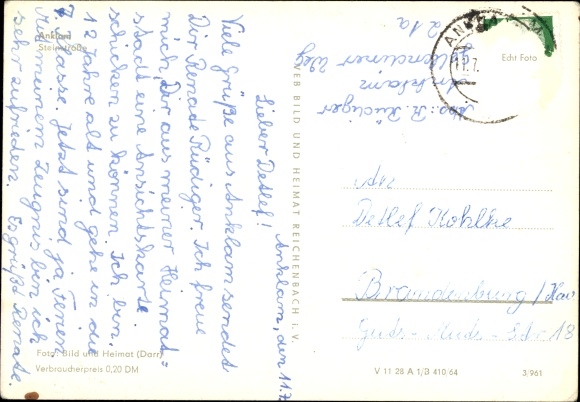 Anklam
Steinstraße
Anklam, den 11.7.
Lieber Detlef!
Viele Grüße aus Anklam sendet
Dir Renade Rüdiger. Ich freue
mich, Dir aus meiner Heimat=
stadt eine Ansichtskarte
schicken zu können. Ich bin
12 Jahre alt und gehe in die
7. Klasse. Jetzt sind ja Ferien
Mit meinem Zeugnis bin ich
sehr zufrieden. Es grüßt Renate.
Foto: Bild und Heimat (Darr)
Verbraucherpreis 0,20 DM
VEB BILD UND HEIMAT REICHENBACH i. V.
Abs.: R. Rüdiger
Anklam
Weg
21a
ANKLAM
11.7.
Echt Foto
An
Detlef Kohlke
Brandenburg / Hav
Guts-Muts-Str 18
V 11 28 A 1/3 410 64
3/961